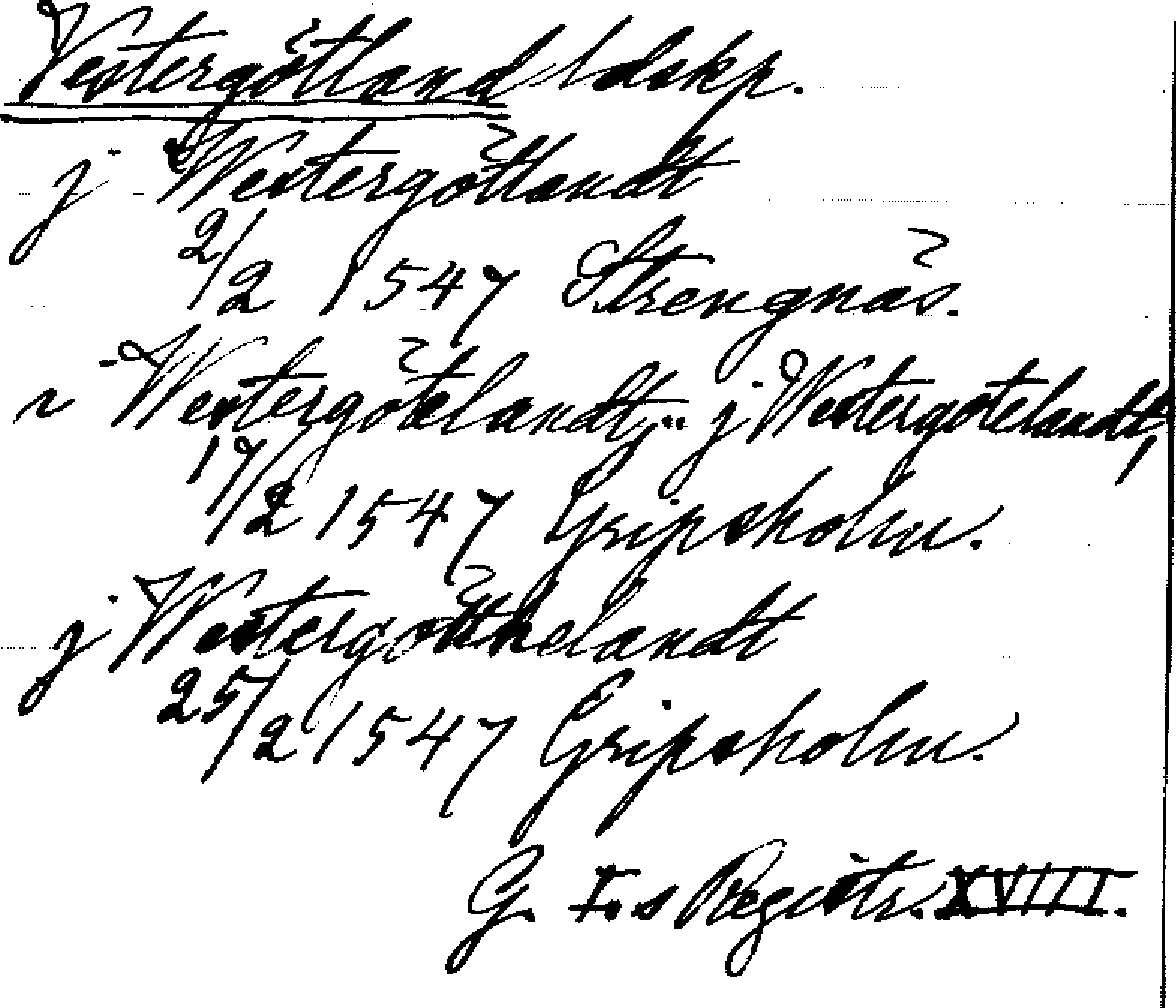 Vestergötland ldskp.
j Westergötlandt
2/2 1547 Strengnäs.
i Westergötelandt, j Westergötelandt,
17/2 1547 Gripsholm.
j Westergötthelandt
25/2 1547 Gripsholm.
G. I.s Registr. XVIII.